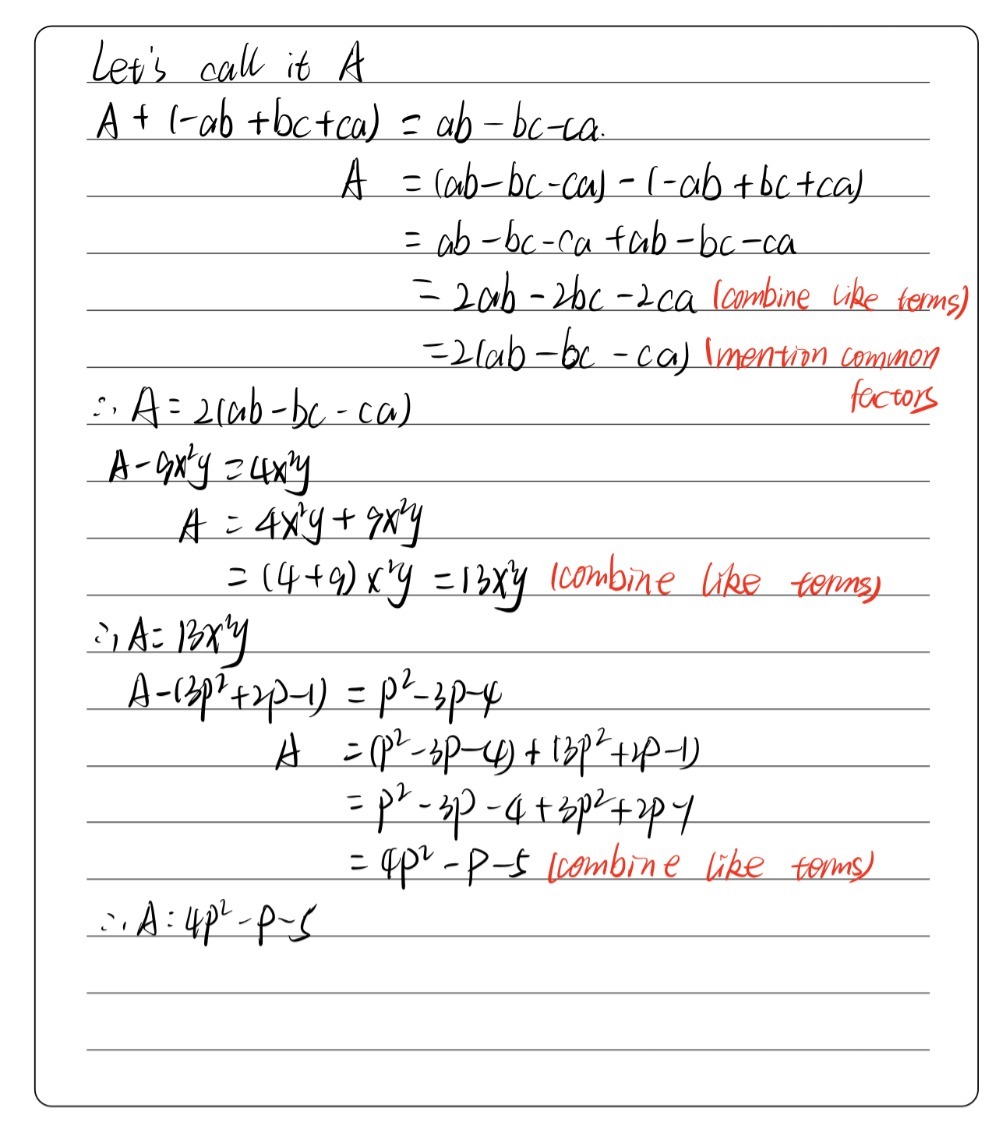 Let's call it A
A + (-ab + bc + ca) = ab - bc - ca.
A = (ab - bc - ca) - (-ab + bc + ca)
= ab - bc - ca + ab - bc - ca
= 2ab - 2bc - 2ca (combine like terms)
= 2(ab - bc - ca) (mention common
factors
∴ A = 2(ab - bc - ca)
A - 9x²y = 4x²y
A = 4x²y + 9x²y
= (4 + 9) x²y = 13x²y (combine like terms)
∴ A = 13x²y
A - (3p² + 2p - 1) = p² - 3p - 4
A = (p² - 3p - 4) + (3p² + 2p - 1)
= p² - 3p - 4 + 3p² + 2p - 1
= 4p² - p - 5 (combine like terms)
∴ A = 4p² - p - 5